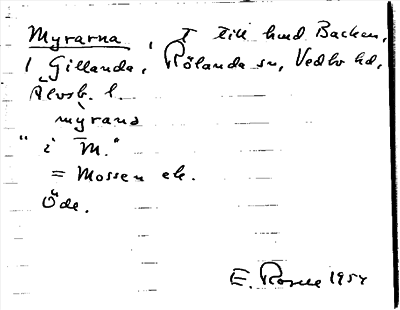 Myrarna, T till hmd Backen,
1 Gillanda, Rölanda sn, Vedbo hd,
Älvsb. l.
mỳrana
"i M."
= Mossen ek.
Öde.
E. Rosell 1954